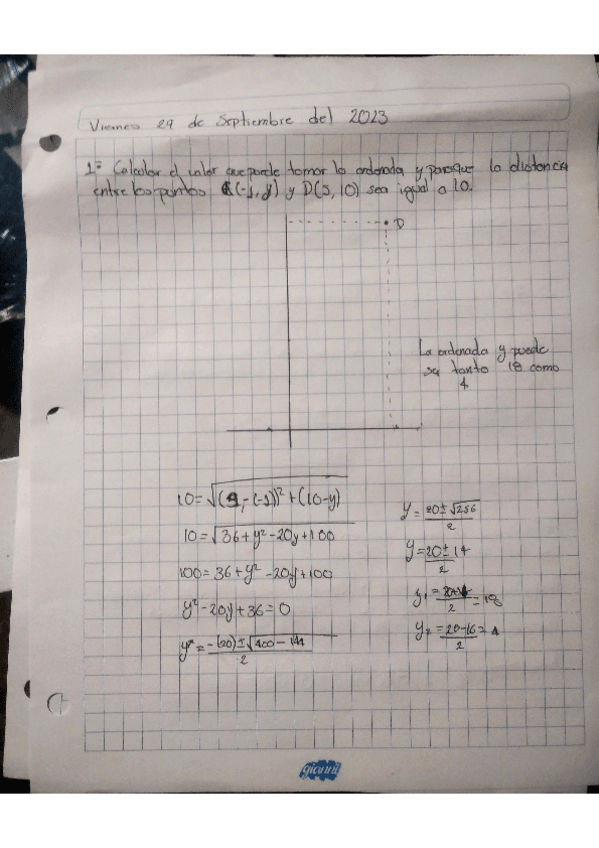 Viernes 29 de Septiembre del 2023
1= Calcular el valor que puede tomar la ordenada y para que la distancia
entre los puntos C(-1, y) y D(5, 10) sea igual a 10.
D
La ordenada y puede
ser tanto 18 como
10=√(5-(-1))²+(10-y)
10=√36+y²-20y+100
100=36+y²-20y+100
y²-20y+36=0
-(20)±√400-144
2
y=20±√256
2
y=20±
2
2
=18
y₂=20-16=
2
gianni